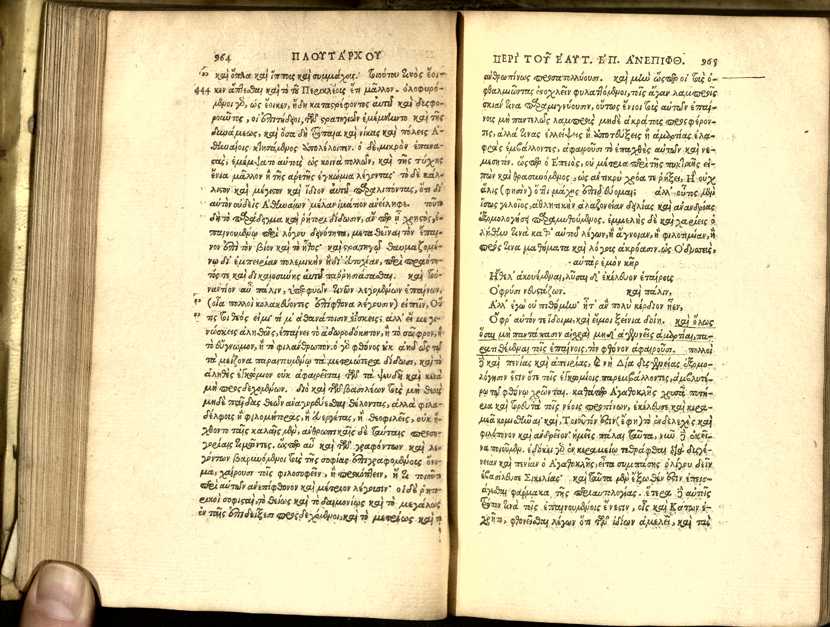 964 ΠΛΟΥΤΑΡΧΟΥ
καὶ ὅπλα καὶ ἵπποις καὶ συμμάχοις. τοιούτου τινὸς ἔοι-
444 κεν ἅπτεσθαι καὶ τὸ τοῦ Περικλέους ἔτι μᾶλλον. ὀλοφυρο-
μένων γὰρ, ὡς ἔοικεν, ἤδη καταστρέφοντος αὐτοῦ καὶ δυσφο-
ρούντων, οἱ ἐπιτήδειοι, τῶν στρατηγιῶν ἐμέμνηντο καὶ τῆς
δυνάμεως, καὶ ὅσα δὴ τρόπαια καὶ νίκας καὶ πόλεις Ἀ-
θηναίοις κτησάμενος ἀπολέλοιπεν. ὁ δὲ μικρὸν ἐπανα-
στὰς, ἐμέμψατο αὐτοὺς ὡς κοινὰ πολλῶν, καὶ τῆς τύχης
ἔνια μᾶλλον ἢ τῆς ἀρετῆς ἐγκώμια λέγοντας· τὸ δὲ κάλ-
λιστον καὶ μέγιστον καὶ ἴδιον αὐτοῦ παραλιπόντας, ὅτι δι'
αὐτὸν οὐδεὶς Ἀθηναίων μέλαν ἱμάτιον ἀνείληφε. τοῦτο
δὴ τὸ παράδειγμα καὶ ῥήτορι δίδωσιν, ἄν περ ᾖ χρηστὸς, ἐ-
παινουμένῳ περὶ λόγου δεινότητα, μεταθεῖναι τὸν ἔπαι-
νον ἐπὶ τὸν βίον καὶ τὸ ἦθος· καὶ στρατηγῷ θαυμαζομέ-
νῳ δι' ἐμπειρίαν πολεμικὴν ἢ δι' εὐτυχίαν, περὶ πραότη-
τός τι καὶ δικαιοσύνης αὐτοῦ παρρησιάσασθαι. καὶ τοὐ-
ναντίον αὖ πάλιν, ὑπερφυῶν τινῶν λεγομένων ἐπαίνων,
(οἷα πολλοὶ κολακεύοντες ἐπίφθονα λέγουσιν) εἰπεῖν, Οὔ
τίς τοι θεός εἰμι· τί μ' ἀθανάτοισιν ἐΐσκεις; ἀλλ' εἴ με γι-
νώσκεις ἀληθῶς, ἐπαίνει τὸ ἀδωροδόκητον, ἢ τὸ σῶφρον, ἢ
τὸ εὔγνωμον, ἢ τὸ φιλάνθρωπον. ὁ γὰρ φθόνος οὐκ ἀηδῶς τῷ
τὰ μείζονα παραιτουμένῳ τὰ μετριώτερα δίδωσι, καὶ τὸ
ἀληθὲς ἐγκώμιον οὐκ ἀφαιρεῖται τῶν τὰ ψευδῆ καὶ κενὰ
μὴ προσδεχομένων. διὸ καὶ τῶν βασιλέων τοὺς μὴ θεοὺς
μηδὲ παῖδας θεῶν ἀναγορεύεσθαι θέλοντας, ἀλλὰ φιλα-
δέλφους ἢ φιλομήτορας, ἢ εὐεργέτας, ἢ θεοφιλεῖς, οὐκ ἤ-
χθοντο ταῖς καλαῖς μὲν, ἀνθρωπικαῖς δὲ ταύταις προση-
γορίαις τιμῶντες. ὥσπερ αὖ καὶ τῶν γραφόντων καὶ λε-
γόντων βαρυνόμενοι τοὺς τῆς σοφίας ἐπιγραφομένους ὄνο-
μα, χαίρουσι τοῖς φιλοσοφεῖν, ἢ προκόπτειν, ἤ τι τοιοῦτο
περὶ αὑτῶν ἀνεπίφθονον καὶ μέτριον λέγουσιν· οἱ δὲ ῥητο-
ρικοὶ σοφισταὶ, τὸ θείως καὶ τὸ δαιμονίως καὶ τὸ μεγάλως
ἐν ταῖς ἐπιδείξεσι προσδεχόμενοι, καὶ τὸ μετρίως καὶ τὸ
ΠΕΡΙ ΤΟΥ ἙΑΥΤ. ἘΠ. ἈΝΕΠΙΦΘ. 965
ἀνθρωπίνως προσαπολλύουσι. καὶ μὴν ὥσπερ οἱ τοὺς ὀ-
φθαλμιῶντας ἐνοχλεῖν φυλαττόμενοι, τοῖς ἄγαν λαμπροῖς
σκιάν τινα παραμιγνύουσιν, οὕτως ἔνιοι τοὺς αὑτῶν ἐπαί-
νους μὴ παντελῶς λαμπροὺς μηδὲ ἀκράτους προσφέρον-
τες, ἀλλά τινας ἐλλείψεις ἢ ἀποτεύξεις ἢ ἁμαρτίας ἐλα-
φρὰς ἐμβάλλοντες, ἀφαιροῦσι τὸ ἐπαχθὲς αὐτῶν καὶ νε-
μεσητόν. ὥσπερ ὁ Ἐπειὸς, οὐ μέτρια περὶ τῆς πυκτικῆς εἰ-
πὼν καὶ θρασυνόμενος, ὡς
Ἢ οὐχ
ἅλις (φησὶν) ὅττι μάχης ἐπιδεύομαι; ἀλλ' οὗτος μὲν
ἴσως γελοῖος, ἀθλητικὴν ἀλαζονείαν δειλίας καὶ ἀνανδρίας
ἐξομολογήσει παραμυθούμενος, ἐμμελὴς δὲ καὶ χαρίεις ὁ
λήθην τινὰ καθ' αὑτοῦ λέγων, ἢ ἄγνοιαν, ἢ φιλοτιμίαν, ἢ
πρός τινα μαθήματα καὶ λόγους ἀκρόασιν. ὡς Ὀδυσσεὺς·
αὐτὰρ ἐμὸν κῆρ
Ἤθελ' ἀκουέμεναι, λῦσαι δ' ἐκέλευον ἑταίρους
Ὀφρύσι νευστάζων. καὶ πάλιν,
Ἀλλ' ἐγὼ οὐ πιθόμην· ἦ τ' ἂν πολὺ κέρδιον ἦεν,
Ὄφρ' αὐτόν τε ἴδοιμι, καὶ εἴ μοι ξείνια δοίη. καὶ ὅλως
ὅσαι μὴ παντάπασιν αἰσχραὶ μηδ' ἀγεννεῖς ἁμαρτίαι, πα-
ρατιθέμεναι τοῖς ἐπαίνοις, τὸν φθόνον ἀφαιροῦσι. πολλοὶ
δὲ καὶ πενίας καὶ ἀπειρίας, καὶ νὴ Δία δυσγενείας ἐξομο-
λόγησιν ἔστιν ὅτε τοῖς ἐγκωμίοις παρεμβάλλοντες, ἀμβλυτέ-
ρῳ τῷ φθόνῳ χρῶνται. καθάπερ Ἀγαθοκλῆς χρυσᾶ ποτή-
ρια καὶ τορευτὰ τοῖς νέοις προπίνων, ἐκέλευσε καὶ κερα-
μεᾶ κομισθῆναι· καὶ, Τοιοῦτόν ἐστιν (ἔφη) τὸ ἐνδελεχὲς καὶ
φιλόπονον καὶ ἀνδρεῖον· ἡμεῖς πάλαι ταῦτα, νῦν δὲ ἐκεῖ-
να ποιοῦμεν. ἐδόκει γὰρ ἐν κεραμείῳ τετράφθαι διὰ δυσγέ-
νειαν καὶ πενίαν ὁ Ἀγαθοκλῆς, εἶτα συμπάσης ὀλίγου δεῖν
ἐβασίλευσε Σικελίας. καὶ ταῦτα μὲν ἔξωθεν ἔστιν ἐπεισ-
άγεσθαι φάρμακα τῆς περιαυτολογίας. ἕτερα δὲ αὐτοῖς
τρόπον τινὰ τοῖς ἐπαινουμένοις ἔνεστιν, οἷς καὶ Κάτων ἐ-
χρῆτο, φθονεῖσθαι λέγων ὅτι τῶν ἰδίων ἀμελεῖ, καὶ τὰς